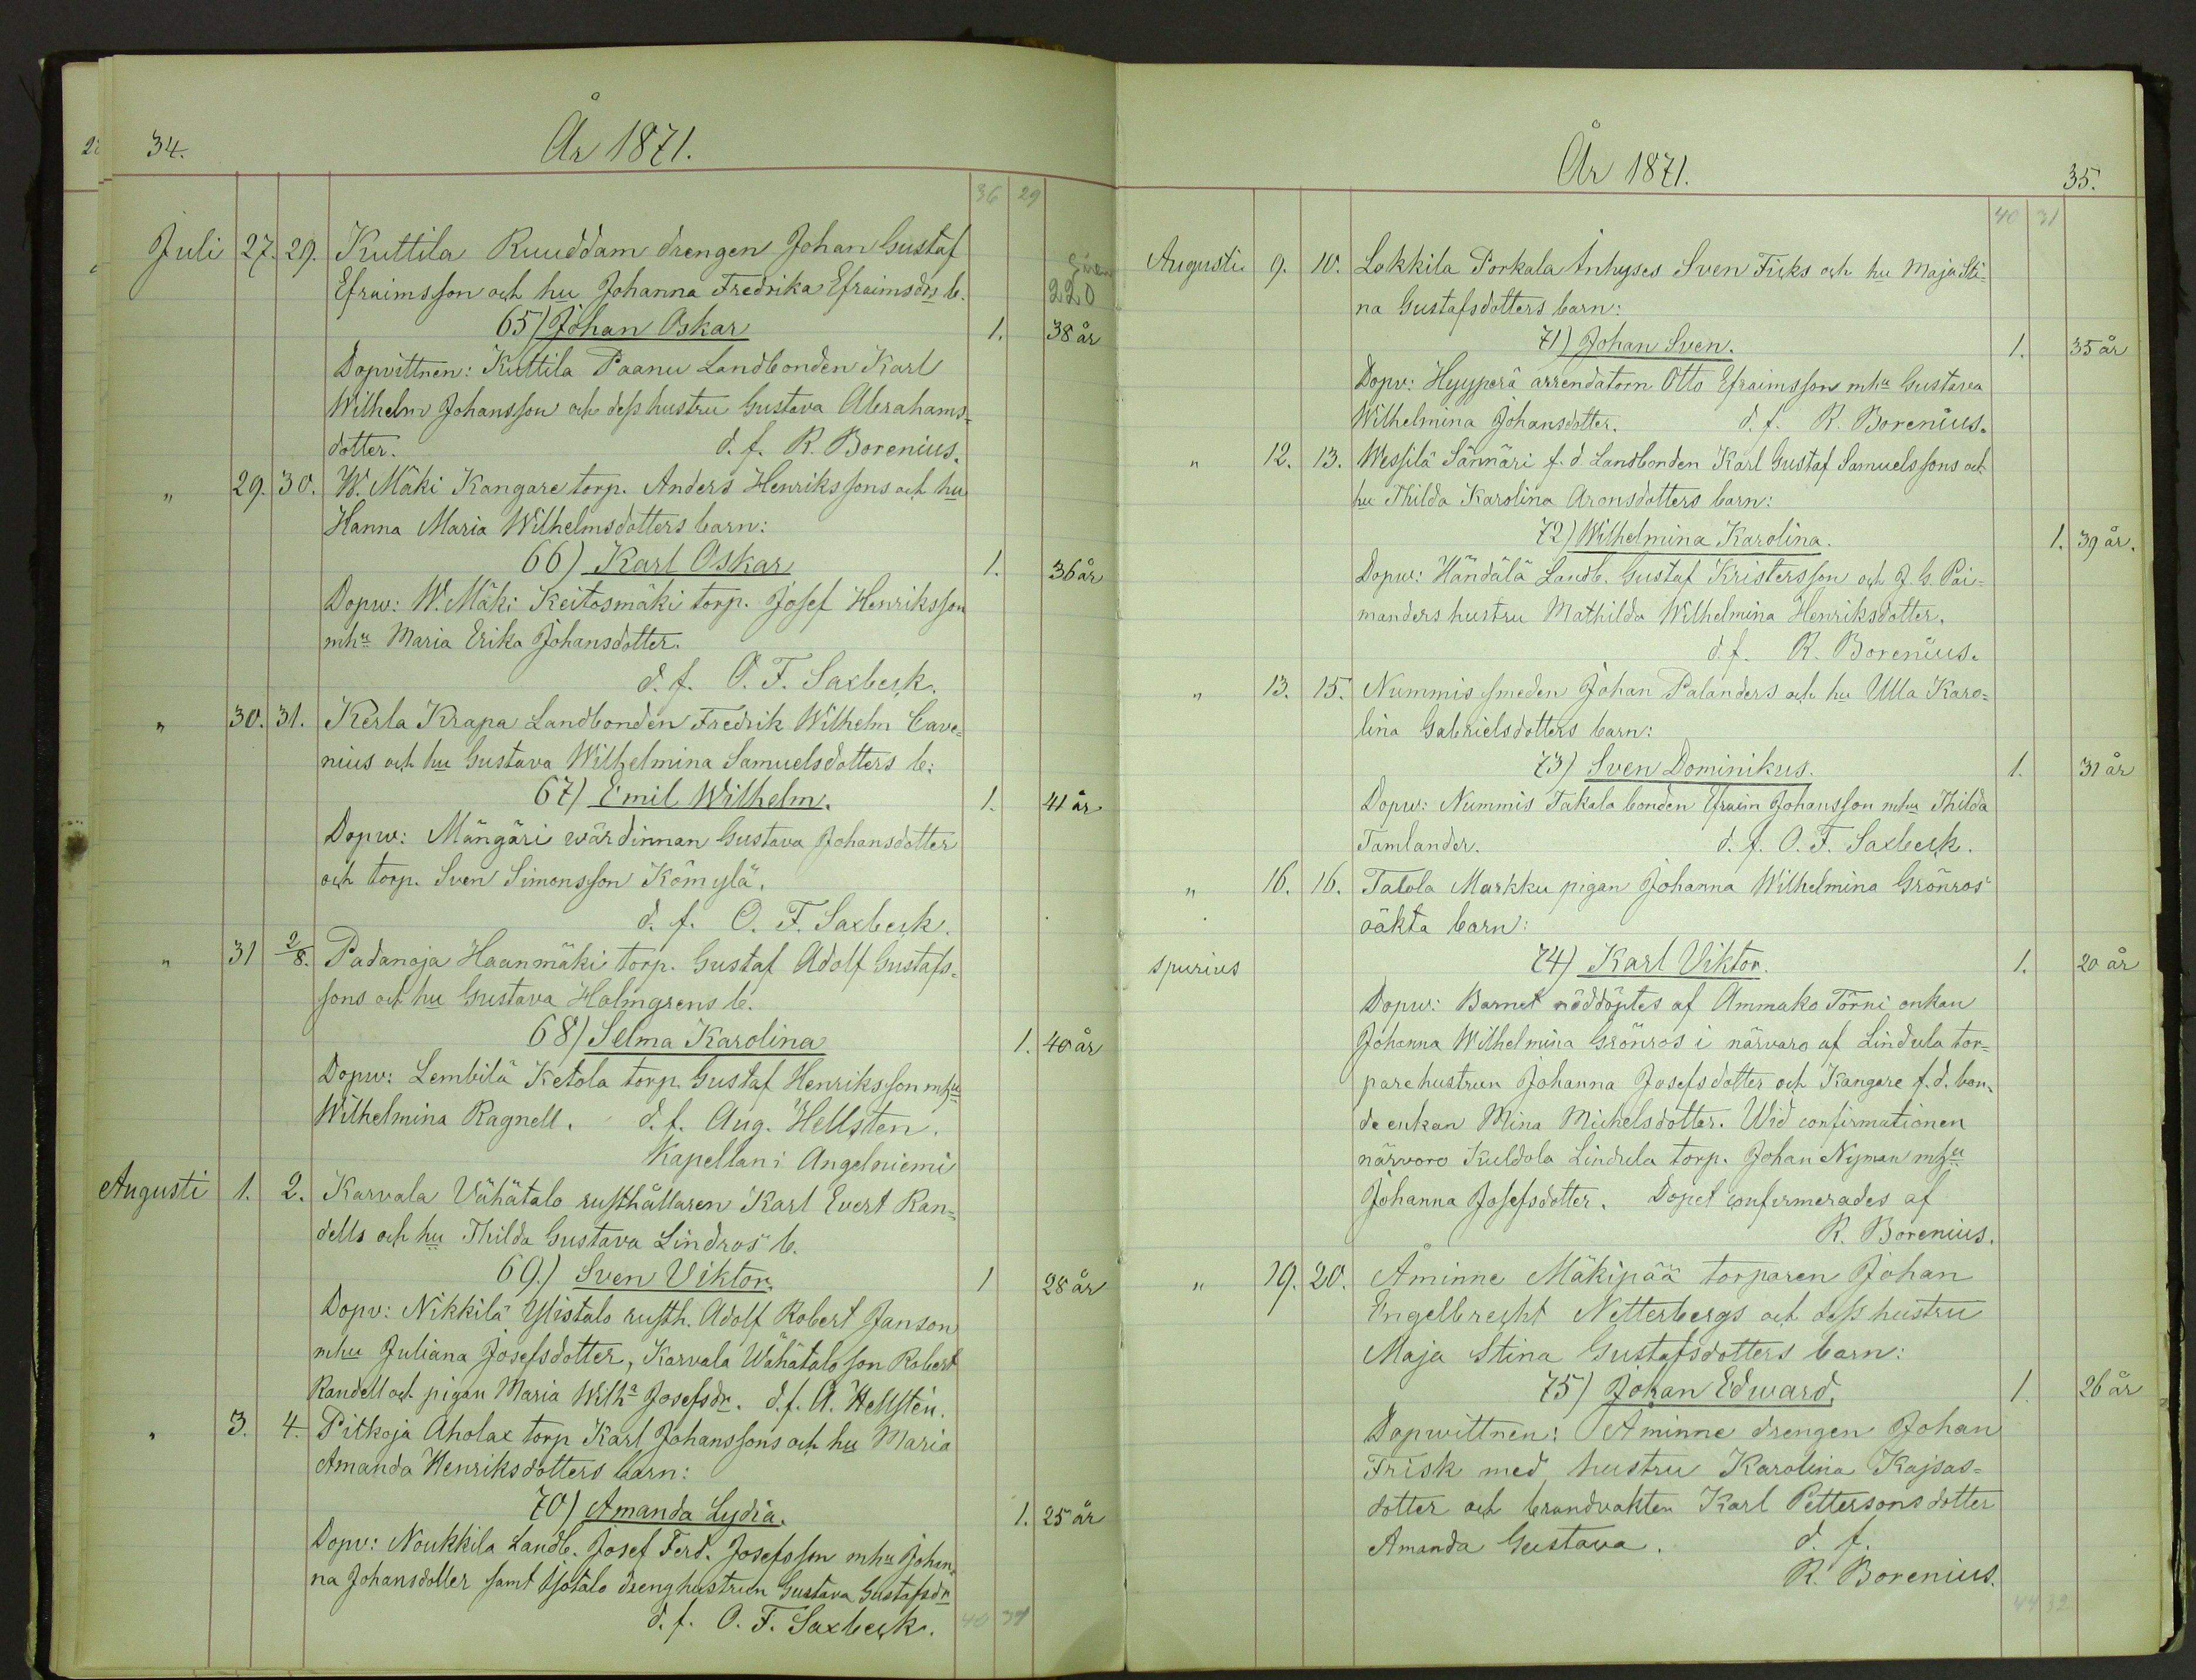 34.
År 1871.
36 29
Juli 27. 29. Kuttila Ruuddam drengen Johan Gustaf
Efraimsson och hu Johanna Fredrika Efraimsdrs b.
220
65) Johan Oskar 1. 38 år
Dopvittnen: Kuttila Paanu Landbonden Karl
Wilhelm Johansson och dess hustru Gustava Abrahams=
dotter. d. f. R. Borenius.
" 29. 30. W. Mäki Kangare torp. Anders Henrikssons och hu
Hanna Maria Wilhelmsdotters barn:
66) Karl Oskar 1. 36 år
Dopw: W. Mäki Keitosmäki torp. Josef Henriksson
mhu Maria Erika Johansdotter.
d. f. O. F. Saxbeck.
" 30. 31. Kerla Krapa Landbonden Fredrik Wilhelm Cave=
nius och hu Gustava Wilhelmina Samuelsdotters b:
67) Emil Wilhelm. 1. 41 år
Dopw: Mängäri wärdinnan Gustava Johansdotter
och torp. Sven Simonsson Kömylä.
d. f. O. F. Saxbeck.
" 31 2/8. Padanoja Haanmäki torp. Gustaf Adolf Gustafs=
sons och hu Gustava Holmgrens b.
68) Selma Karolina 1. 40 år
Dopw: Lembilä Ketola torp. Gustaf Henriksson mhu
Wilhelmina Ragnell. d. f. Aug. Hellsten.
Kapellan i Angelniemi
Augusti 1. 2. Karvala Vähätalo rusthållaren Karl Evert Ran=
dells och hu Thilda Gustava Lindros' b.
69.) Sven Viktor. 1 28 år
Dopv: Nikkilä Ylistalo rusth. Adolf Robert Janson
mhu Juliana Josefsdotter, Karvala Wähätalo son Robert
Randell och pigan Maria Wilha Josefsdr. d. f. A. Hellsten.
" 3. 4. Pitkoja Aholax torp Karl Johanssons och hu Maria
Amanda Henriksdotters barn:
70) Amanda Lydia. 1. 25 år
Dopv: Noukkila Landb. Josef Ferd. Josefsson mhu Johan=
na Johansdotter samt Isotalo drenghustrun Gustava Gustafsdr
d. f. O. F. Saxbeck. 40 31
År 1871.
35.
40 31
Augusti 9. 10. Lakkila Porkala Inhyses Sven Fisks och hu Maja Sti=
na Gustafsdotters barn:
71) Johan Sven. 1. 35 år
Dopv: Hyyperä arrendatorn Otto Efraimsson mhu Gustava
Wilhelmina Johansdotter. d. f. R. Borenius.
" 12. 13. Wessilä Sännäri f. d. Landbonden Karl Gustaf Samuelssons och
hu Thilda Karolina Aronsdotters barn:
72) Wilhelmina Karolina. 1. 39 år.
Dopw: Händälä Landb. Gustaf Kristersson och J. G. Pai=
manders hustru Mathilda Wilhelmina Henriksdotter.
d. f. R. Borenius.
" 13. 15. Nummis smeden Johan Palanders och hu Ulla Karo=
lina Gabrielsdotters barn:
73) Sven Dominikus. 1. 31 år
Dopw: Nummis Takala bonden Efraim Johansson mhu Thilda
Tamlander. d. f. O. F. Saxbeck.
" 16. 16. Tatola Markku pigan Johanna Wilhelmina Grönros'
oäkta barn:
spurius 74) Karl Viktor. 1. 20 år
Dopw: Barnet nöddöptes af Ammako Törni enkan
Johanna Wilhelmina Grönros i närvaro af Lindula tor=
parehustrun Johanna Josefsdotter och Kangare f. d. bon=
deenkan Mina Michelsdotter. Wid confirmationen
närvoro Kuldola Lindula torp. Johan Nyman mhu
Johanna Josefsdotter. Dopet confirmerades af
R. Borenius.
" 19. 20. Åminne Mäkipää torparen Johan
Engelbrecht Netterbergs och dess hustru
Maja Stina Gustafsdotters barn:
75) Johan Edward. 1. 26 år
Dopwittnen: Åminne drengen Johan
Frisk med hustru Karolina Kajsas=
dotter och brandvakten Karl Pettersons dotter
Amanda Gustava. d. f.
R. Borenius.
44 32